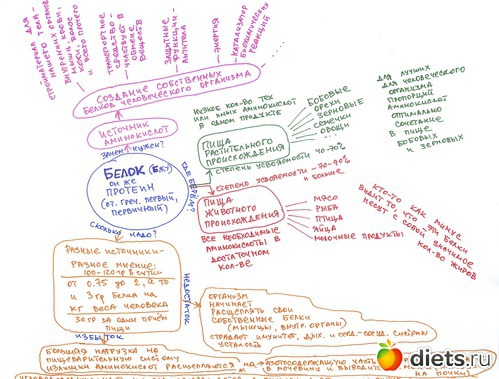 СТРОЙМАТЕРИАЛ ДЛЯ
НАШЕГО ТЕЛА -
ВНУТРЕННИХ ОРГАНОВ
МЫШЦ, КРОВИ,
КОЖИ, ВОЛОС
И ВСЕГО ПРОЧЕГО
ТРАНСПОРТНОЕ
СРЕДСТВО -
УЧАСТВУЕТ В
ОБМЕНЕ
ВЕЩЕСТВ
ЗАЩИТНЫЕ
ФУНКЦИИ -
АНТИТЕЛА
ЭНЕРГИЯ
КАТАЛИЗАТОР
БИОХИМИЧЕСКИХ
РЕАКЦИЙ
СОЗДАНИЕ СОБСТВЕННЫХ
БЕЛКОВ ЧЕЛОВЕЧЕСКОГО ОРГАНИЗМА
ИСТОЧНИК
АМИНОКИСЛОТ
ЗАЧЕМ НУЖЕН?
БЕЛОК (БЖУ)
ОН ЖЕ
ПРОТЕИН
(ОТ. ГРЕЧ. ПЕРВЫЙ,
ПЕРВИЧНЫЙ)
ГДЕ БЕРЕМ?
НИЗКОЕ КОЛ-ВО ТЕХ
ИЛИ ИНЫХ АМИНОКИСЛОТ
В ОДНОМ ПРОДУКТЕ
ПИЩА
РАСТИТЕЛЬНОГО
ПРОИСХОЖДЕНИЯ
СТЕПЕНЬ УСВОЯЕМОСТИ
БОБОВЫЕ
ОРЕХИ
ЗЕРНОВЫЕ
СЕМЕЧКИ
ОВОЩИ
ДЛЯ ЛУЧШИХ
ДЛЯ ЧЕЛОВЕЧЕСКОГО
ОРГАНИЗМА
ПРОПОРЦИЙ
АМИНОКИСЛОТ
ОПТИМАЛЬНО
СОЧЕТАНИЕ
В ПИЩЕ
БОБОВЫХ
И ЗЕРНОВЫХ
СТЕПЕНЬ УСВОЯЕМОСТИ - 70-90%
И БОЛЬШЕ
ПИЩА
ЖИВОТНОГО
ПРОИСХОЖДЕНИЯ
ВСЕ НЕОБХОДИМЫЕ
АМИНОКИСЛОТЫ В
ДОСТАТОЧНОМ
КОЛ-ВЕ
МЯСО
РЫБА
ПТИЦА
ЯЙЦА
МОЛОЧНЫЕ ПРОДУКТЫ
КТО-ТО КАК МИНУС
ВИДИТ ТО, ЧТО ЭТИ БЕЛКИ
НЕСЯТ С СОБОЙ ЗНАЧИМОЕ
КОЛ-ВО ЖИРОВ
СКОЛЬКО НАДО?
РАЗНЫЕ ИСТОЧНИКИ -
РАЗНОЕ МНЕНИЕ:
100-120 ГР В СУТКИ
ОТ 0.75 ДО 2, А ТО
И 3 ГР БЕЛКА НА
КГ ВЕСА ЧЕЛОВЕКА
30 ГР ЗА ОДИН ПРИЕМ
ПИЩИ
НЕДОСТАТОК
ОРГАНИЗМ
НАЧИНАЕТ
РАСЩЕПЛЯТЬ СВОИ
СОБСТВЕННЫЕ БЕЛКИ
(МЫШЦЫ, ВНУТР. ОРГАНЫ)
СТРАДАЕТ ИМУНИТЕТ, ДЫХ. И СЕРД.-СОСУД. СИСТЕМЫ
УСТАЛОСТЬ
ИЗБЫТОК
БОЛЬШАЯ НАГРУЗКА НА
ПИЩЕВАРИТЕЛЬНУЮ СИСТЕМУ
ИЗЛИШКИ АМИНОКИСЛОТ РАСЩЕПЛЯЮТСЯ НА АЗОТСОДЕРЖАЩУЮ ЧАСТЬ
В МОЧЕВИНУ И ВЫВОДИТ
НА ПОЧКИ)
diets.ru